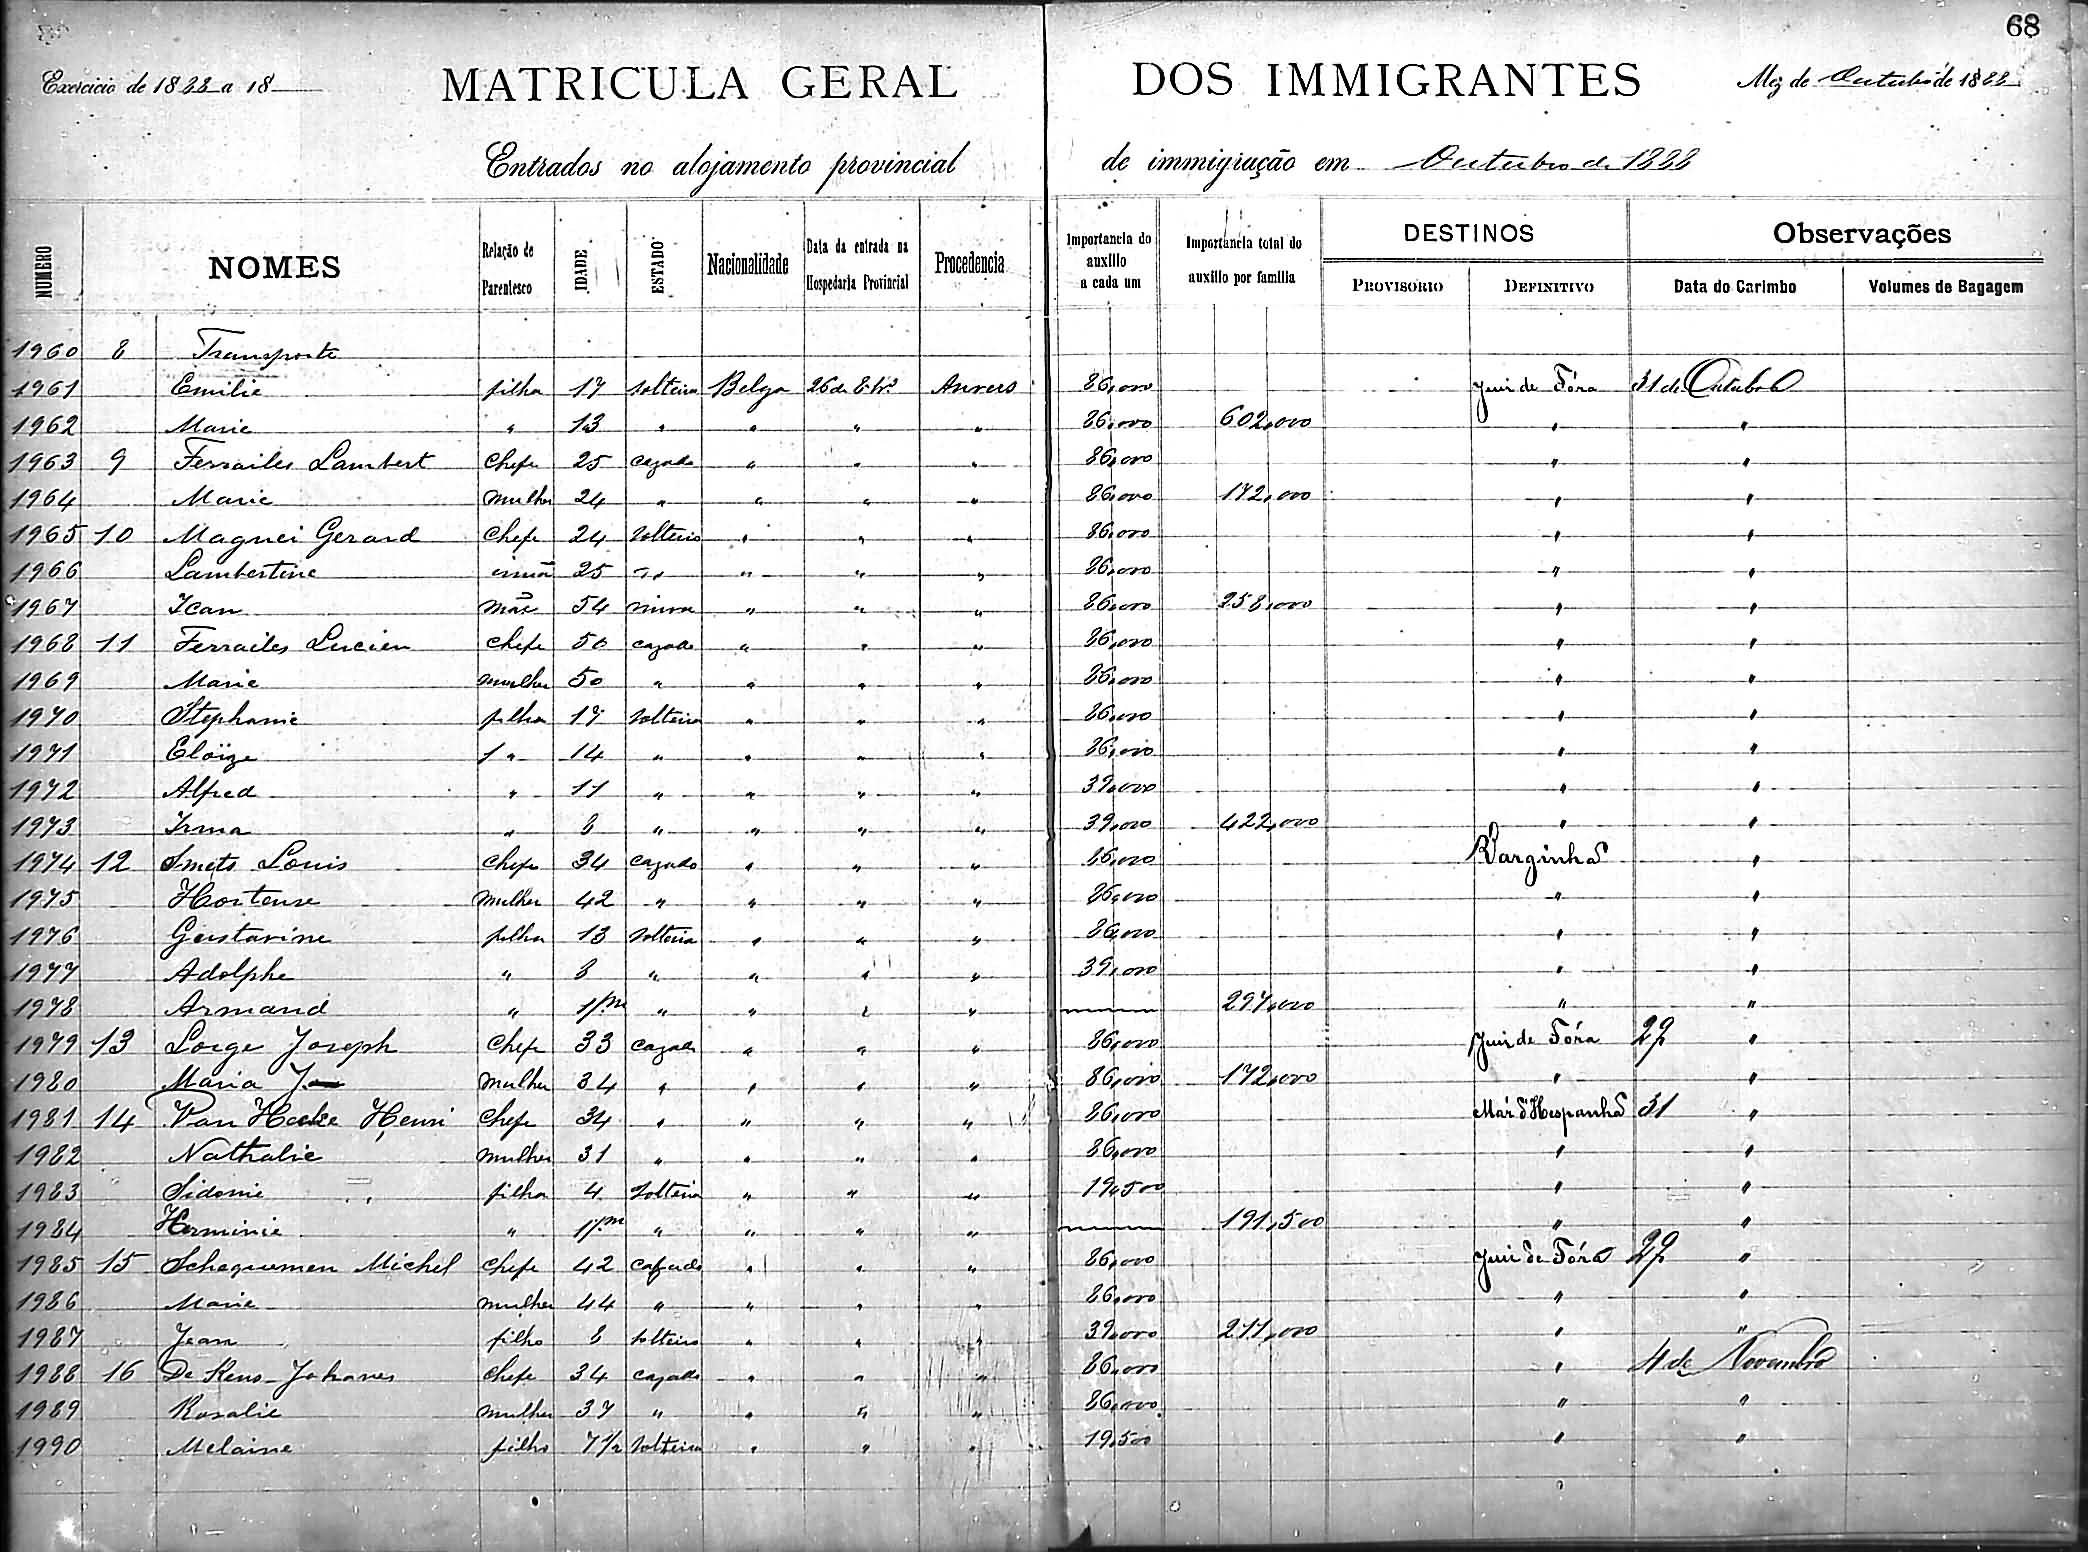 68
Exercicio de 1888 a 18
MATRICULA GERAL DOS IMMIGRANTES
Mez de Outubro de 1888
Entrados no alojamento provincial de immigração em Outubro de 1888
NUMERO NOMES Relação de Parentesco IDADE ESTADO Nacionalidade Data da entrada na Hospedaria Provincial Procedencia Importancia do auxilio a cada um Importancia total do auxilio por familia DESTINOS PROVISORIO DEFINITIVO Observações Data do Carimbo Volumes de Bagagem
1960 8 Transporte
1961 Emilie filha 17 solteira Belga 26 de 8bro Anvers 86,000 Juiz de Fóra 31 de Outubro
1962 Marie " 13 " " " " 86,000 602,000 " "
1963 9 Ferrailes Lambert Chefe 25 cazado " " " 86,000 " "
1964 Marie mulher 24 " " " " 86,000 172,000 " "
1965 10 Magnei Gerard Chefe 24 solteiro " " " 86,000 " "
1966 Lambertine irmã 25 " " " " 86,000 " "
1967 Jean mãe 54 viuva " " " 86,000 258,000 " "
1968 11 Ferrailes Lucien Chefe 50 cazado " " " 86,000 " "
1969 Marie mulher 50 " " " " 86,000 " "
1970 Stephanie filha 17 solteira " " " 86,000 " "
1971 Eloïze " 14 " " " " 86,000 " "
1972 Alfred " 11 " " " " 39,000 " "
1973 Irma " 8 " " " " 39,000 422,000 " "
1974 12 Smets Louis Chefe 34 cazado " " " 86,000 Varginha "
1975 Hortense mulher 42 " " " " 86,000 " "
1976 Gustavine filha 13 solteira " " " 86,000 " "
1977 Adolphe " 8 " " " " 39,000 " "
1978 Armand " 1/m " " " " 297,000 " "
1979 13 Lorge Joseph Chefe 33 cazado " " " 86,000 Juiz de Fóra 29 "
1980 Maria mulher 34 " " " " 86,000 172,000 " "
1981 14 Van Hecke Henri Chefe 34 " " " " 86,000 Mar d'Hespanha 31 "
1982 Nathalie mulher 31 " " " " 86,000 " "
1983 Sidonie filha 4 solteira " " " 19,500 " "
1984 Herminie " 1/m " " " " 191,500 " "
1985 15 Michel Chefe 42 cazado " " " 86,000 Juiz de Fóra 29 "
1986 Marie mulher 44 " " " " 86,000 " "
1987 Jean filho 8 solteiro " " " 39,000 211,000 " "
1988 16 De Johanes Chefe 34 cazado " " " 86,000 " 4 de Novembro
1989 Rosalie mulher 37 " " " " 86,000 " "
1990 Melaine filho 7 1/2 solteira " " " 19,500 " "